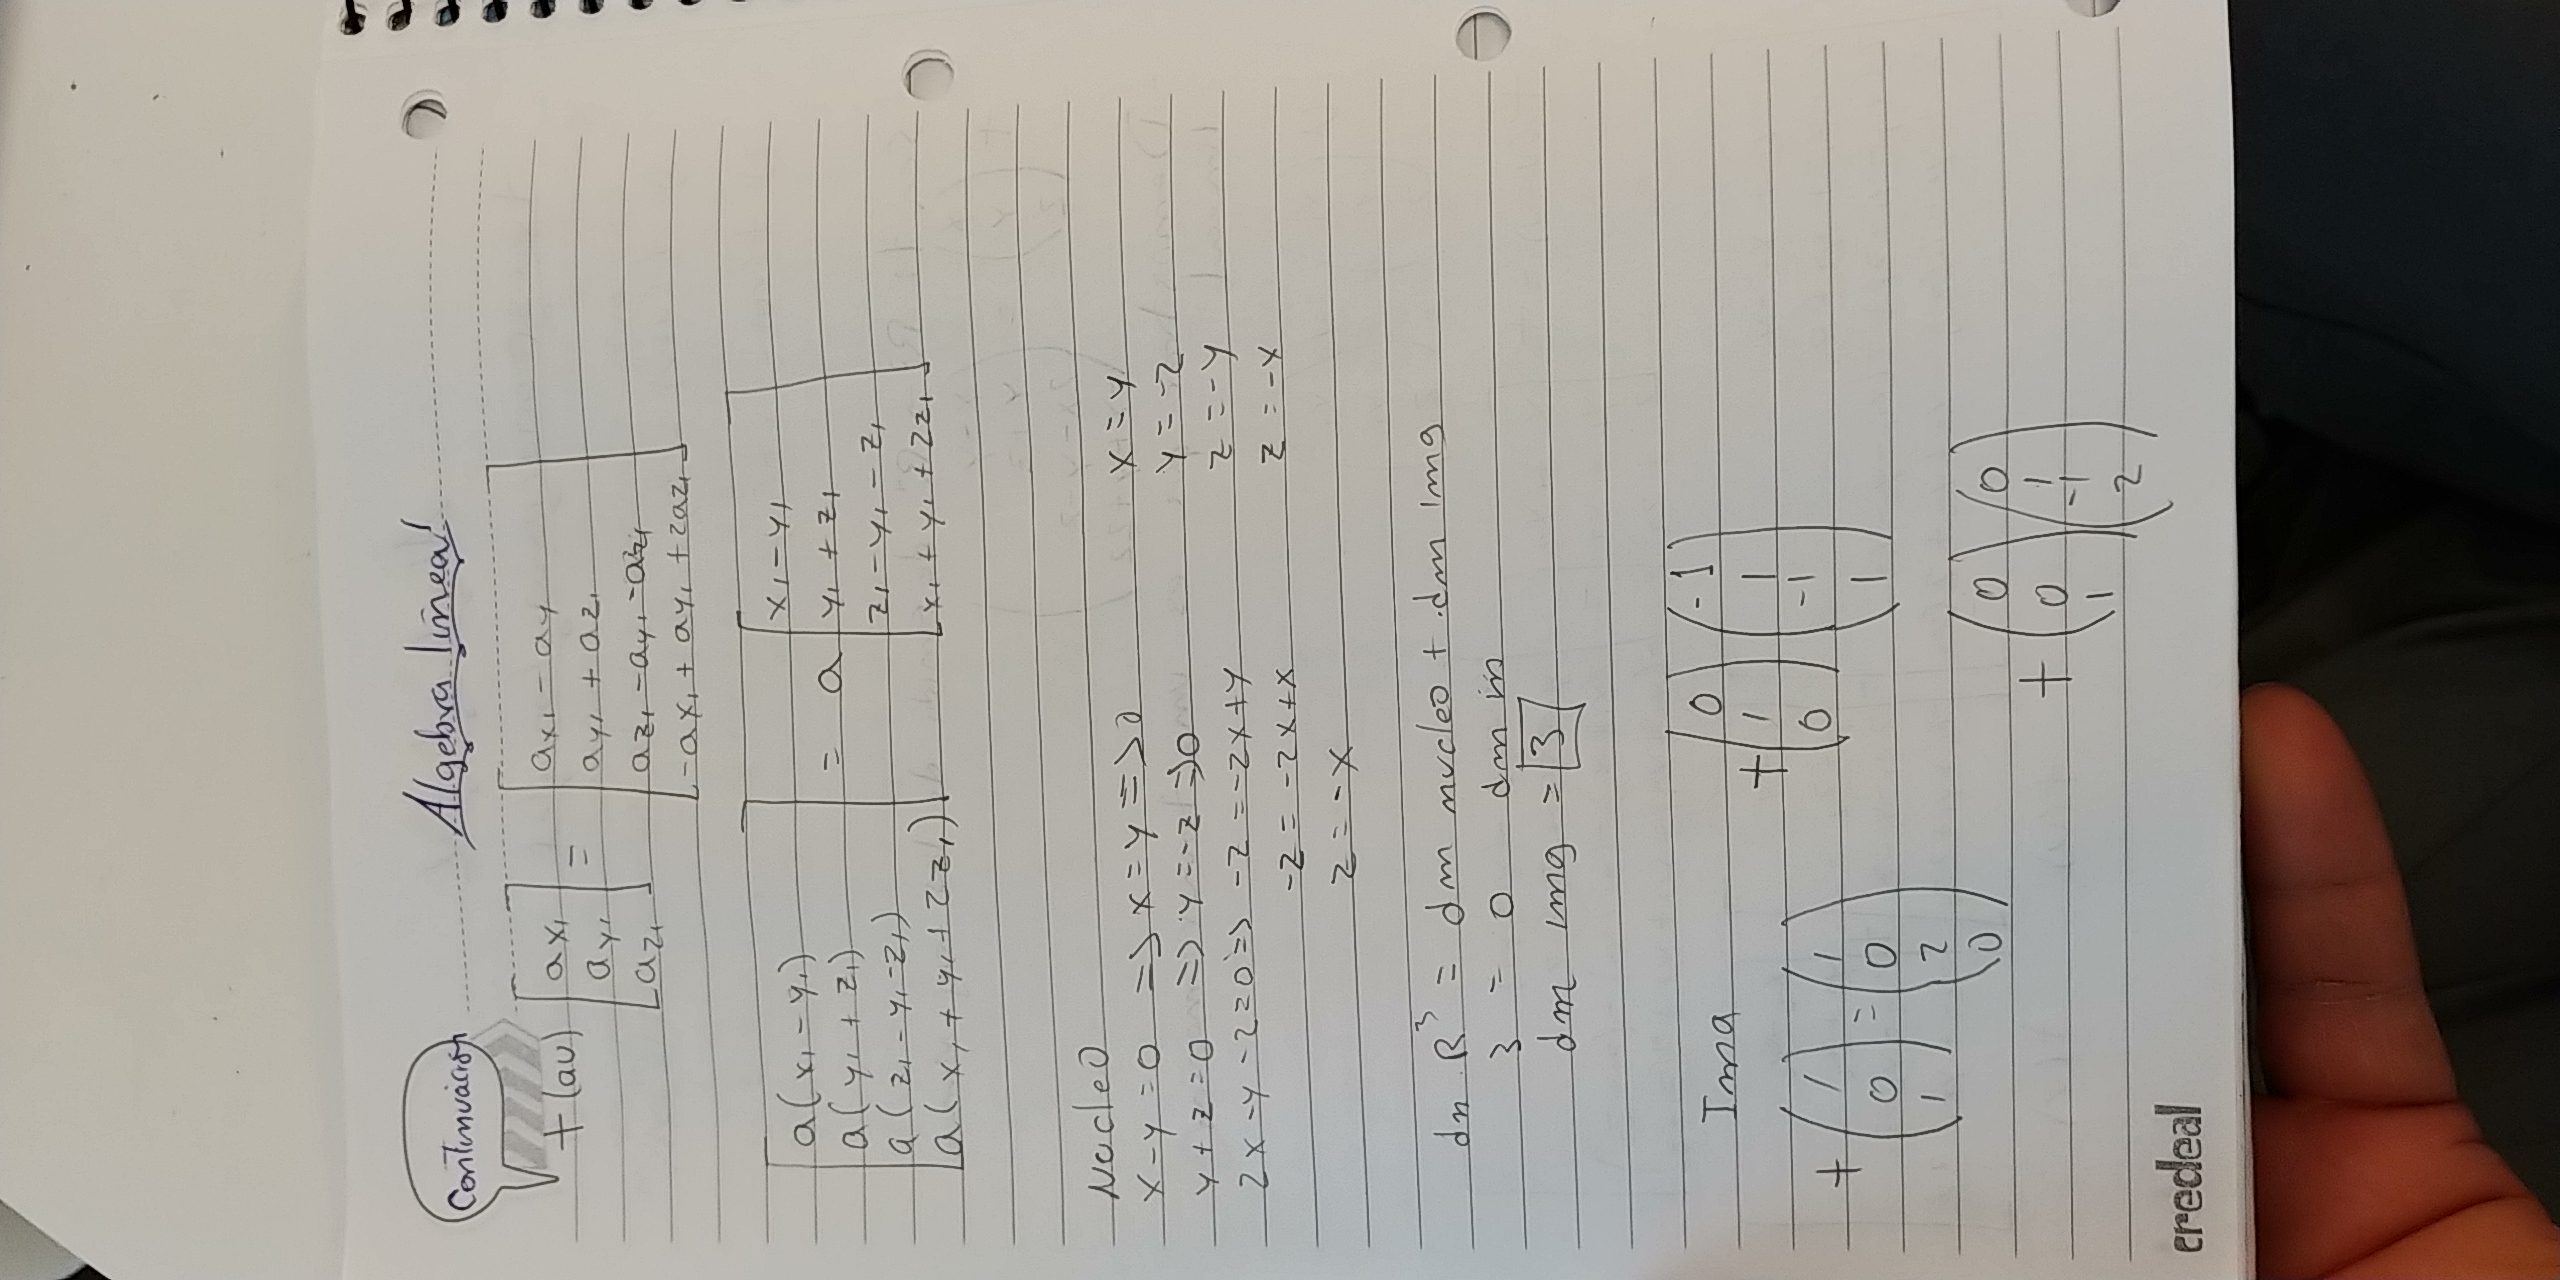 Continuación
Algebra lineal
T(au) [ax₁ ay₁ az₁] = [ax₁ - ay
ay₁ + az₁
az₁ - ay₁ - az₁
-ax₁ + ay₁ + 2az₁]
[a(x₁ - y₁)
a(y₁ + z₁)
a(z₁ - y₁ - z₁)
a(x₁ + y₁ + 2z₁)] = a [x₁ - y₁
y₁ + z₁
z₁ - y₁ - z₁
x₁ + y₁ + 2z₁]
Nucleo
x - y = 0 => x = y => 0 x = y
y + z = 0 => y = -z => 0 y = -z
2x - y - z = 0 => -z = -2x + y z = -y
-z = -2x + x z = -x
z = -x
dn R³ = dm nucleo + dm img
3 = 0 dm in
dm img = 3
Ima
T (0 1 0) (-1 1 -1 1)
T (1 0 1) = (1 0 2 0)
T (0 0 1) (0 1 -1 2)
credeal